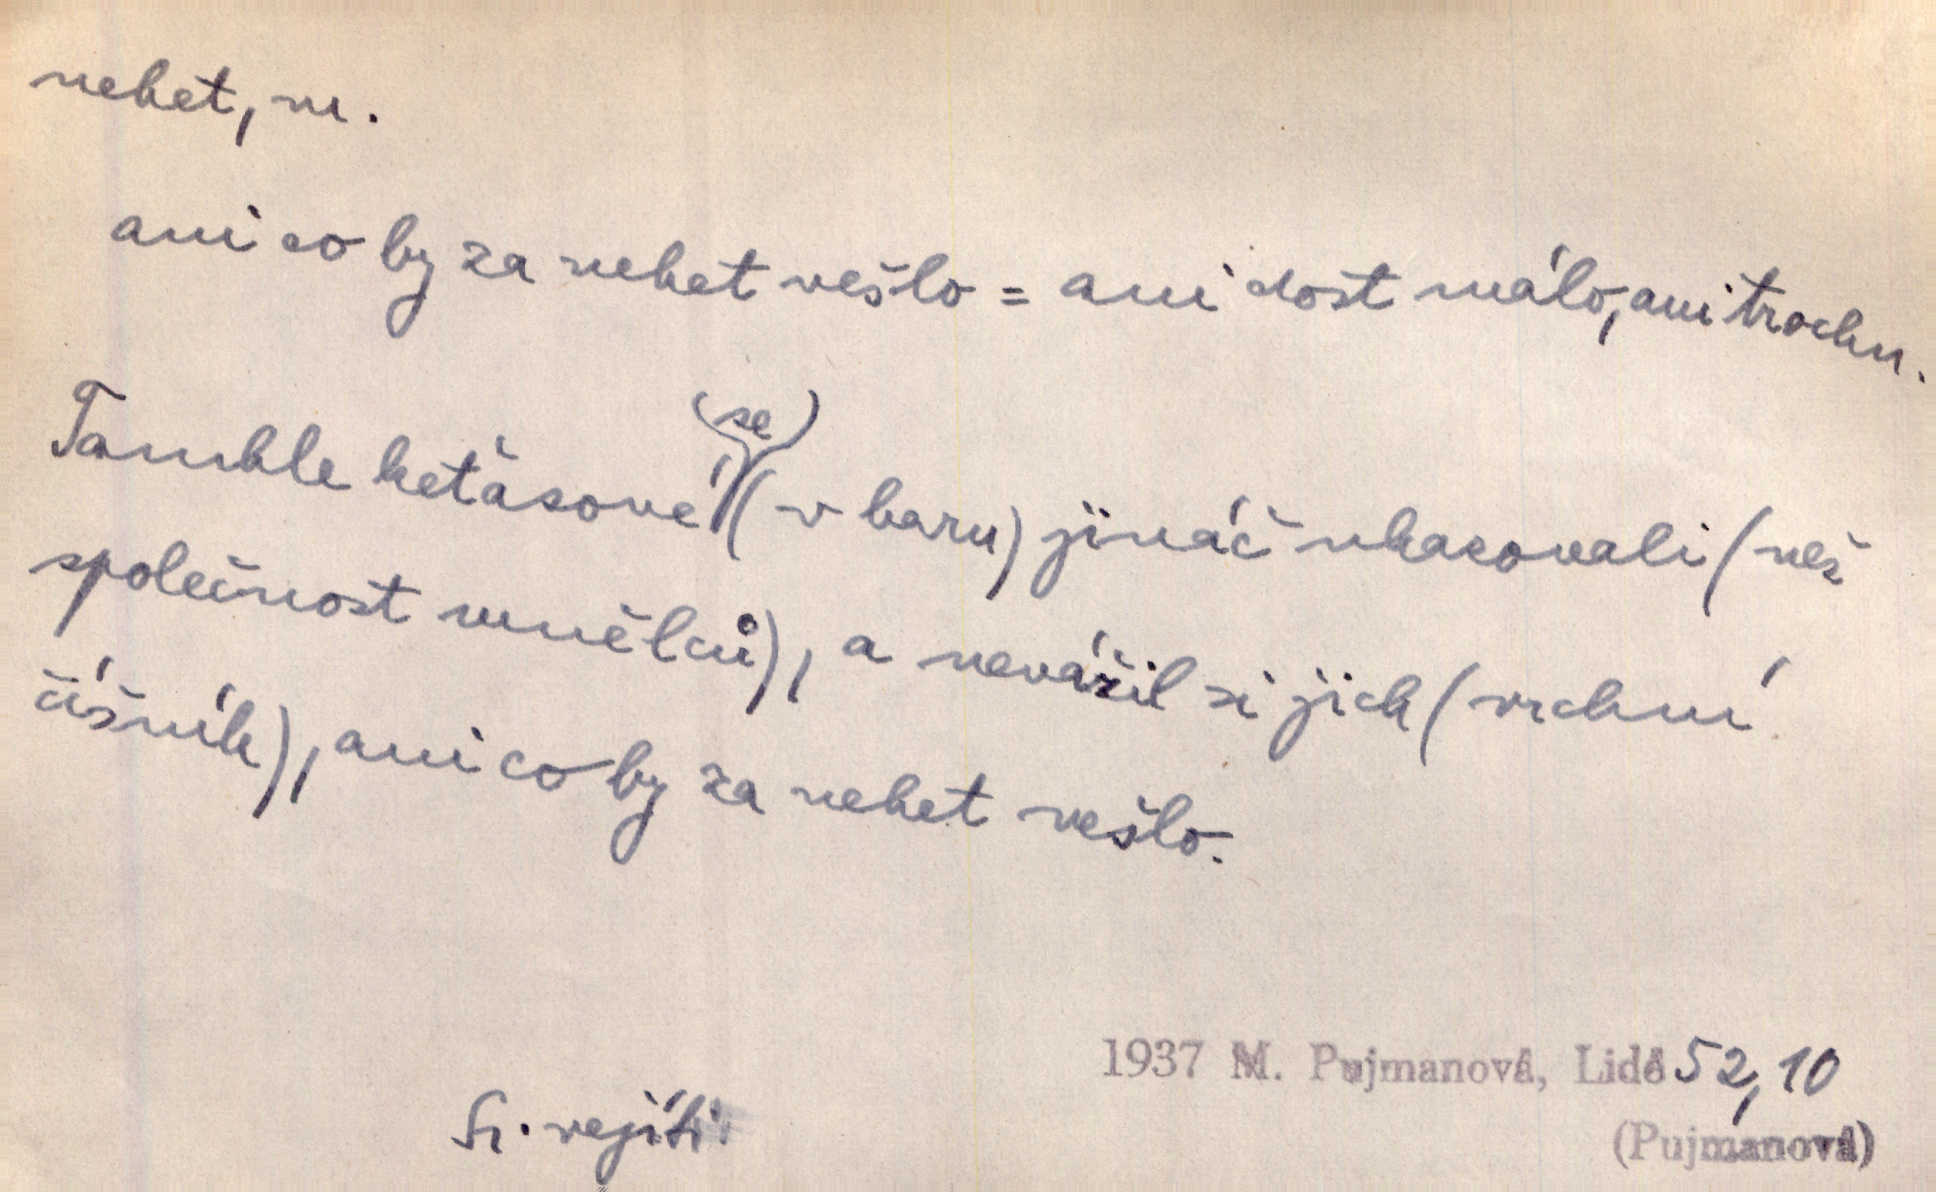 nehet, m.
ani co by za nehet vešlo = ani dost málo, ani trochu.
(se)
Tamhle keťasové (v baru) jináč ukazovali (než
společnost umělců), a nevážil si jich (vrchní
číšník), ani co by za nehet vešlo.
1937 M. Pujmanová, Lidé 52,10
Sr. vejíti
(Pujmanová)